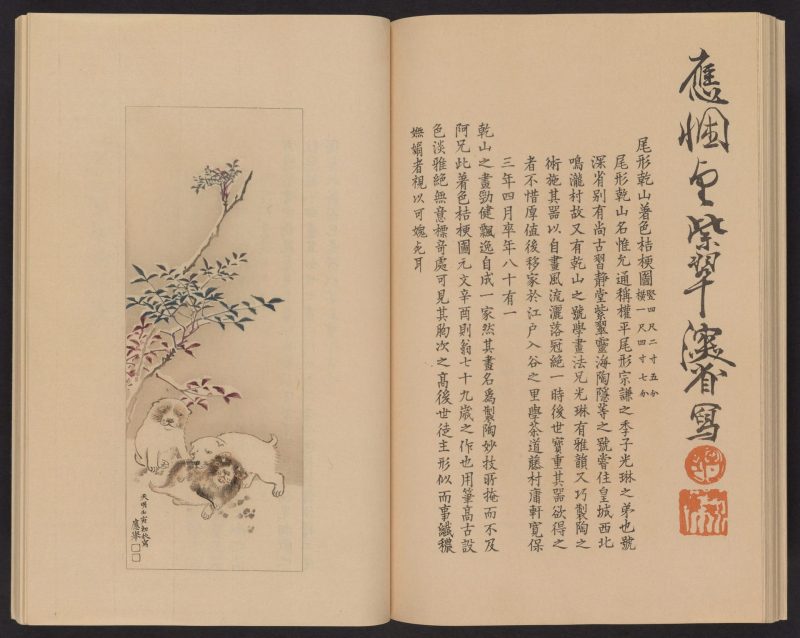 應紫翠深省寫
尾形乾山著色桔梗圖 竪四尺二寸五分 横一尺四寸七分
尾形乾山名惟允通稱權平尾形宗謙之季子光琳之弟也號
深省別有尚古習靜堂紫翠靈海陶隱等之號嘗住皇城西北
鳴瀧村故又有乾山之號學畫法兄光琳有雅韻又巧製陶之
術施其器以自畫風流灑落冠絶一時後世寶重其器欲得之
者不惜厚値後移家於江户入谷之里學茶道藤村庸軒寛保
三年四月卒年八十有一
乾山之畫勁健飄逸自成一家然其畫名爲製陶妙技所掩而不及
阿兄此著色桔梗圖元文辛酉則翁七十九歳之作也用筆高古設
色淡雅絶無意標奇處可見其胸次之高後世徒主形似而事纎穠
嫵媚者視以可媿死耳
天明壬寅初秋寫
應擧